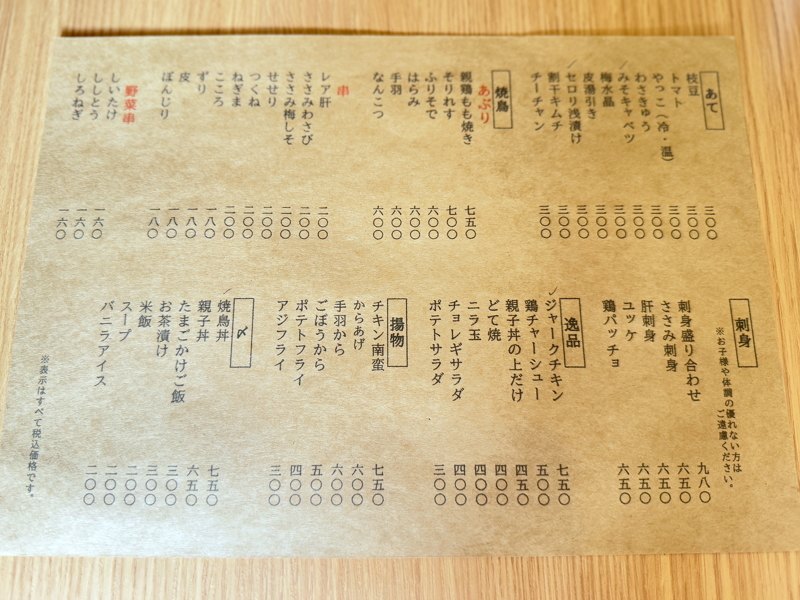 あて
枝豆 三〇〇
トマト 三〇〇
やっこ(冷・温) 三〇〇
わさきゅう 三〇〇
みそキャベツ 三〇〇
梅水晶 三〇〇
皮湯引き 三〇〇
セロリ浅漬け 三〇〇
割干キムチ 三〇〇
チーチャン 三〇〇
焼鳥
あぶり
親鶏もも焼き 七五〇
そりれす 七〇〇
ふりそで 六〇〇
はらみ 六〇〇
手羽 六〇〇
なんこつ 六〇〇
串
レア肝 二〇〇
ささみわさび 二〇〇
ささみ梅しそ 二〇〇
せせり 二〇〇
つくね 二〇〇
ねぎま 二〇〇
こころ 一八〇
ずり 一八〇
皮 一八〇
ぼんじり 一八〇
野菜串
しいたけ 一六〇
ししとう 一六〇
しろねぎ 一六〇
刺身
※お子様や体調の優れない方は
ご遠慮ください。
刺身盛り合わせ 九八〇
ささみ刺身 六五〇
肝刺身 六五〇
ユッケ 六五〇
鶏パッチョ 六五〇
逸品
ジャークチキン 七五〇
鶏チャーシュー 五〇〇
親子丼の上だけ 四五〇
どて焼 四〇〇
ニラ玉 四〇〇
チョレギサラダ 四〇〇
ポテトサラダ 三〇〇
揚物
チキン南蛮 七五〇
からあげ 六〇〇
手羽から 六〇〇
ごぼうから 五〇〇
ポテトフライ 四〇〇
アジフライ 三〇〇
〆
焼鳥丼 七五〇
親子丼 六五〇
たまごかけご飯 三〇〇
お茶漬け 三〇〇
米飯 二〇〇
スープ 二〇〇
バニラアイス 二〇〇
※表示はすべて税込価格です。